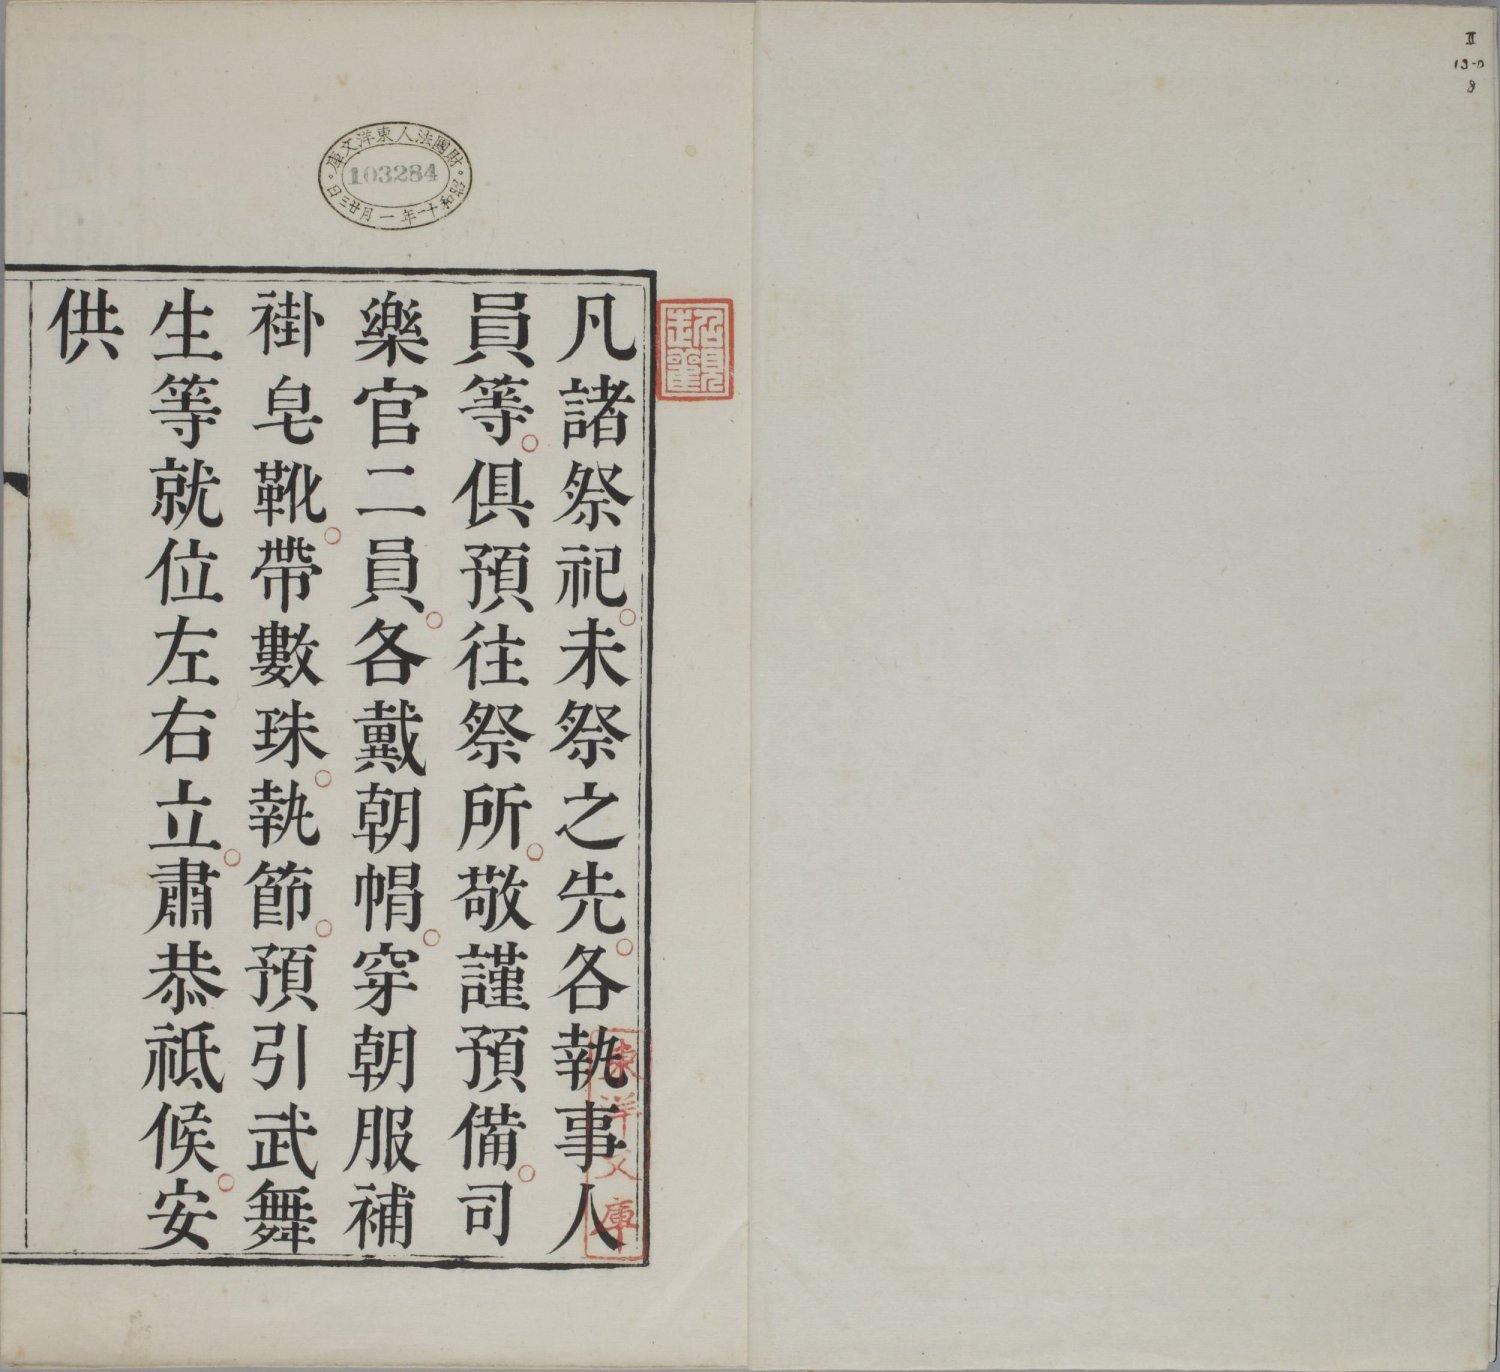 凡諸祭祀。未祭之先。各執事人
員等。俱預往祭所。敬謹預備。司
樂官二員。各戴朝帽。穿朝服補
褂皂靴。帶數珠。執節。預引武舞
生等就位左右立。肅恭祗候。安
供
財團法人東洋文庫
103284
昭和十一年一月廿三日
東洋文庫
II
13-D